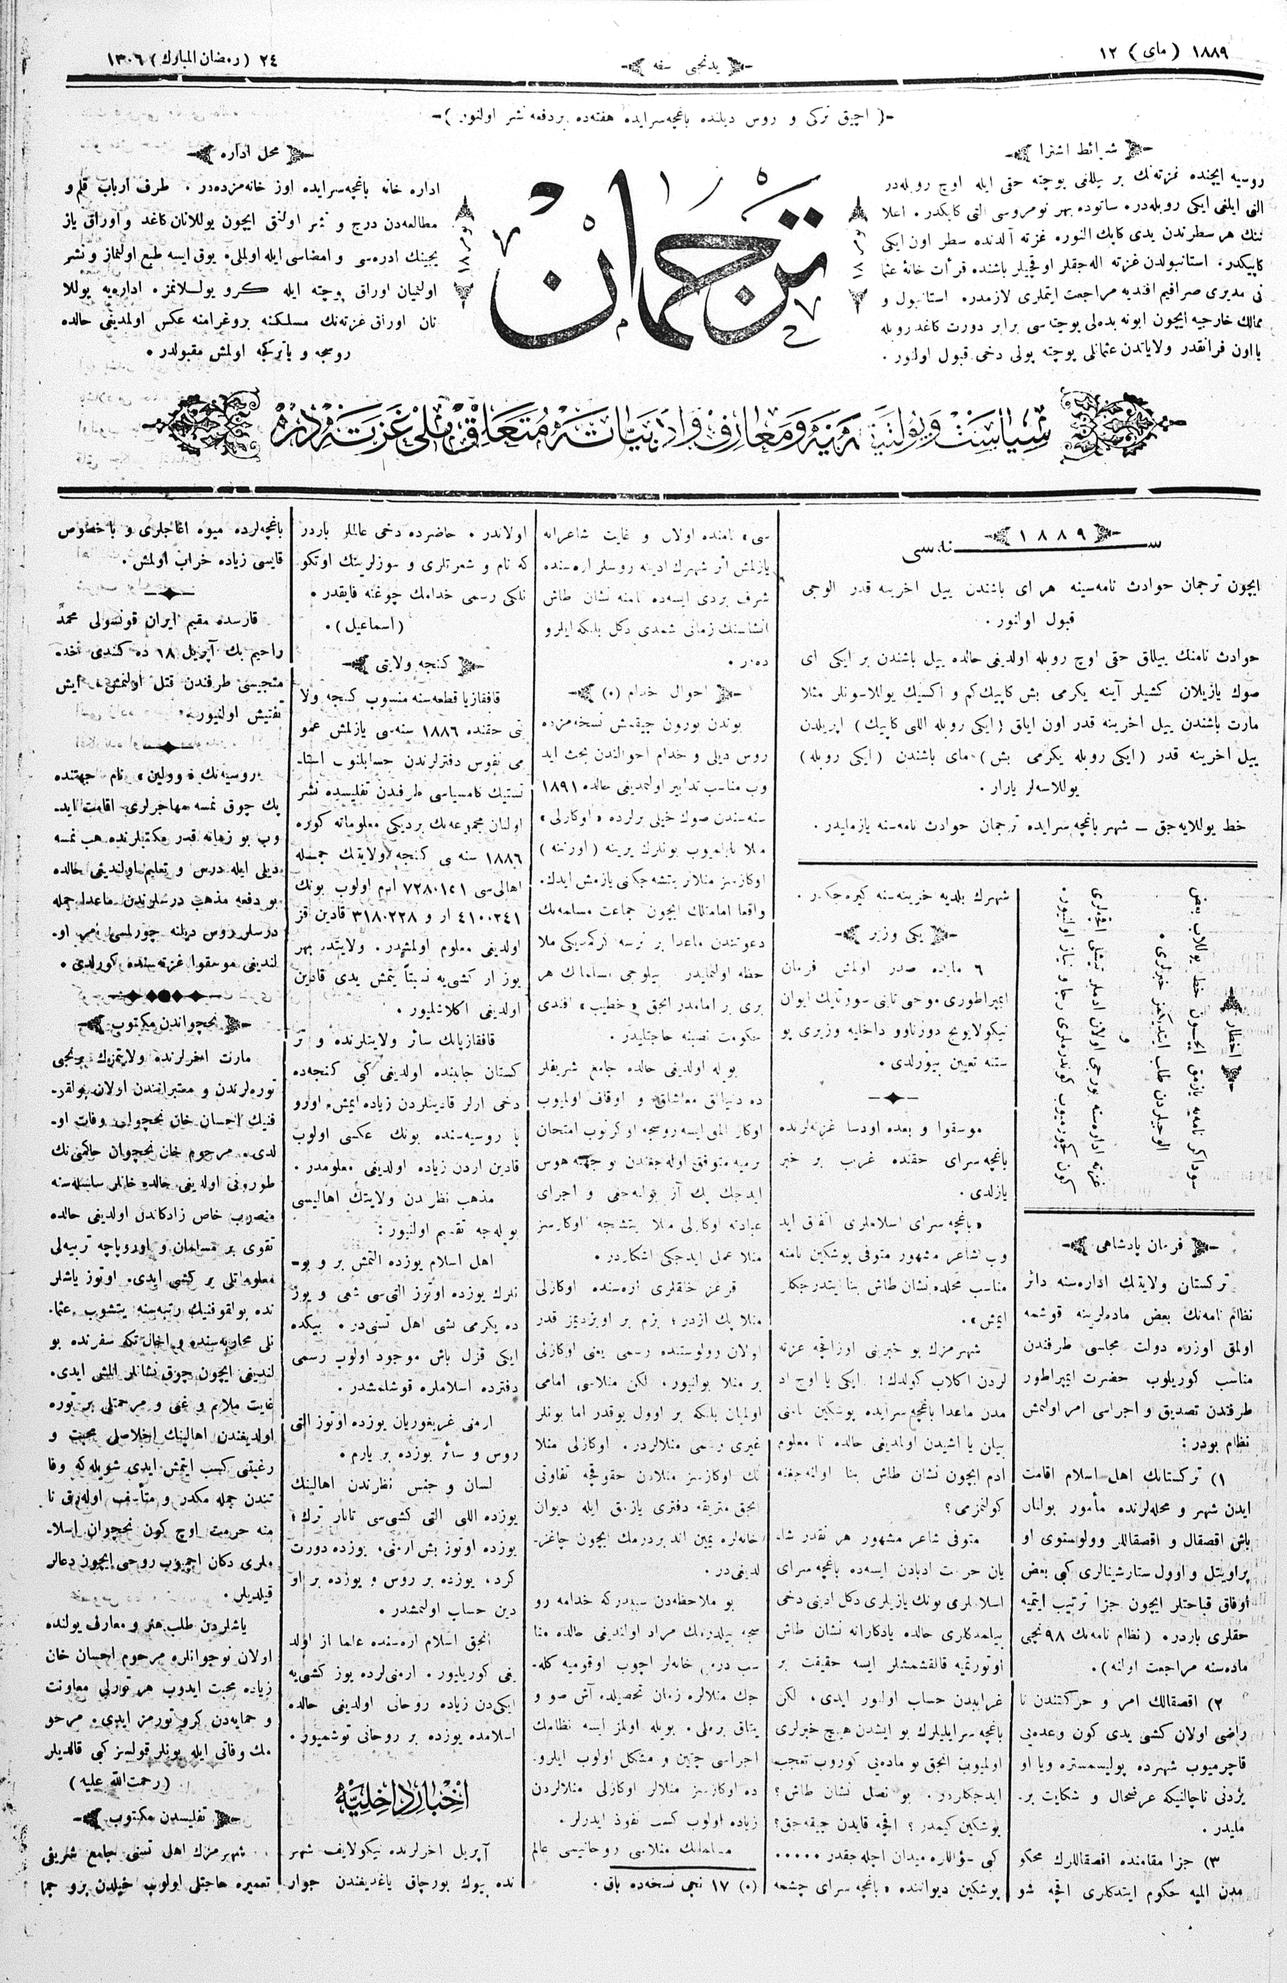 ١٨٨٩ (مای) ١٢
یدنجی سنه
٢٤ (رمضان المبارك) ١٣٠٦
(آچیق ترکی و روس دیلنده باغچه‌سرایده هفته‌ده بر دفعه نشر اولنور)
شرائط اشترا
روسیه ایچنده غزته‌نك بر ییللغی پوچته حقی ایله اوچ روبله‌در
التی ایلغی ایکی روبله‌در. ساتوده بهر نومروسی التی کاپکدر. اعلا
ننك هر سطرندن یدی کاپك النور. غزته آلدنده سطر اون ایکی
کاپیکدر. استانبولدن غزته اله‌جقلر اوقچیلر باشنده قرأت خانهٔ عثما
نی مدیری صرافیم افندیه مراجعت ایتملری لازمدر. استانبول و
ممالك خارجیه ایچون ابونه بده‌لی پوچته‌سی برابر دورت کاغد روبله
یا اون فرانقدر ولایاتدن عثمانلی پوچته پولی دخی قبول اولنور.
نومرو ١٨
ترجمان
نومرو ١٨
محل اداره
اداره خانه باغچه‌سرایده اوز خانه‌مزده‌در. طرف ارباب قلم و
مطالعه‌دن درج و نشر اولنق ایچون یوللانان کاغد و اوراق یاز
یجینك ادره‌سی و امضاسی ایله اولملی. یوق ایسه طبع اولنماز و نشر
اولنمیان اوراق پوچته ایله کرو یوللانمز. اداره‌یه یوللا
نان اوراق غزته‌نك مسلکنه پروغرامنه عکس اولمدیغی حالده
روسجه و یا ترکجه اولمش مقبولدر.
سیاست و معارف و ادبیاته متعلق ملی غزته‌مزدر
١٨٨٩ سنه‌سی
ایچون ترجمان حوادث نامه‌سینه هر ای باشندن ییل اخرینه قدر الوجی
قبول اولنور.
حوادث نامنك ییللق حقی اوچ روبله اولدیغی حالده ییل باشندن بر ایکی ای
صوك یازیلان کشیلر آینه یکرمی بش کاپیك کم و اکسیك یوللاسونلر مثلا
مارت باشندن ییل اخرینه قدر اون ایلق (ایکی روبله اللی کاپیك) اپریلدن
ییل اخرینه قدر (ایکی روبله یکرمی بش) مای باشندن (ایکی روبله)
یوللاسه‌لر یارار.
خط یوللایه‌جق — شهر باغچه‌سرایده ترجمان حوادث نامه‌سنه یازملیدر.
اخطار
سوداکر نامه‌یه یازمق ایچون خط یوللاب بعض
الوجیلردن طلب ایتدیکمز خبرلری.
و
غزته اداره‌سنه بورجی اولان ادملر تیشلی اقچه‌لری
کون کچورمیوب کوندرملری رجا و نیاز اولنیور.
فرمان پادشاهی
ترکستان ولایتك اداره‌سنه دائر
نظام نامه‌نك بعض ماده‌لرینه قوشمه
اولمق اوزره دولت مجلسی طرفندن
مناسب کوریلوب حضرت ایمپراطور
طرفندن تصدیق و اجراسی امر اولنمش
نظام بودر:
١) ترکستانك اهل اسلام اقامت
ایدن شهر و محله‌لرنده مأمور بولنان
باش اقصقال و اقصقاللر وولوستوی او
پراویتل و اوول ستارشینالری کبی بعض
اوفاق قباحتلر ایچون جزا ترتیب ایتمیه
حقلری باردر. (نظام نامه‌نك ٩٨نجی
ماده‌سنه مراجعت اولنه).
٢) اقصقالك امر و حرکتندن نا
راضی اولان کشی یدی کون وعده‌یی
قاچرمیوب شهرده پولیسمستره ویا او
یزدنی ناچالنیکه عرضحال و شکایت بر
ملیدر.
٣) جزا مقامنده اقصقاللرك محکو
مدن المیه حکوم ایتدکاری اقچه شو
شهرك بلدیه خزینه‌سنه کیره‌جکدر.
یکی وزیر
٦ مایده صدر اولمش فرمان
ایمپراطوری موجی ثانی سوریتنك ایوان
نیکولایویچ دورناوو داخلیه وزیری پو
ستنه تعیین بیورلدی.
موسقوا و بعده اودسا غزته‌لرنده
باغچه سرای حقنده غریب بر خبر
یازلدی.
«باغچه سرای اسلاملری اتفاق اید
وب شاعر مشهور متوفی پوشکین نامنه
مناسب محلده نشان طاش بنا ایتدرجکلر
ایمش».
شهرمزك بو خبرینی اوزاقچه غزته
لردن اکلاب کولدك! ایکی یا اوچ اد
مدن ماعدا باغچه‌سرایده پوشکین نامنی
بیان یا اشیدن اولمدیغی حالده نا معلوم
ادم ایچون نشان طاش بنا اولنه‌جغنه
کولنمزمی؟
متوفی شاعر مشهور هر نقدر شا-
یان حرمت ادبادن ایسه‌ده باغچه سرای
اسلاملری بونك یازیلری دکل ادینی دخی
بیلمدکلری حالده یادکارانه نشان طاش
اوتورتمیه قالقشمشلر ایسه حقیقت بر
غرایبدن حساب اولنور ایدی. لکن
باغچه سرایلیلرك بو ایشدن هیچ خبرلری
اولمیوب انجق بو ماده‌یی کوروب تعجب
ایدجکلردر. بو نصل نشان طاش؟
پوشکین کیمدر؟ اقچه قایدن چیقه‌جق؟
کبی سؤاللره میدان اچله‌جقدر.....
پوشکین دیواننده «باغچه سرای چشمه
سی» نامنده اولان و غایت شاعرانه
یازلمش اثر شهرك ادینه روسلر اره‌سنده
شرف بردی ایسه‌ده نامنه نشان طاش
انشاسنك زمانی شمدی دکل بلکه ایلرو
ده‌در.
احوال خدام (٥)
بوندن بورون چیقمش نسخه‌مزده
روس دیلی و خدام احوالندن بحث اید
وب مناسب تدابیر اولنمدیغی حالده ١٨٩١
سنه‌سندن صوك خیلی یرلرده «اوکازلی»
ملا تابلمیوب بونلرك یرینه (اورتنه)
اوکازسز ملالر یتشه‌جکنی یازمش ایدك.
واقعا امامتلك ایچون جماعت مسلمه‌نك
دعوتندن ماعدا بر نرسه کرکمیکی ملا
حظه اولنمایدر. بیلوجی مسلمانك هر
بری بر امامدر انجق «خطیب» افندی
حکومت نصبنه حاجتلیدر.
بویله اولدیغی حالده جامع شریفلر
ده دنیالق معاشلق و اوقاف اولمیوب
اوکاز المق ایسه روسجه اوکرنوب امتحان
برمیه متوقف اوله‌جغندن بو جهته هوس
ایدجك پك آز بولنه‌جغی و اجرای
عباداته اوکازلی ملا یتشمجه اوکازسز
ملا عمل ایدجکی اشکاردر.
قرغز خلقلری اره‌سنده اوکازلی
ملا پك ازدر؛ بزم بر اویزدمز قدر
اولان وولوستنده رسمی یعنی اوکازلی
بر ملا بولنیور. لکن ملاسی امامی
اولمیان بلکه بر اوول یوقدر اما بونلر
غیری رسمی ملالردر. اوکازلی ملا
نك اوکازسز ملادن حقوقچه تفاوتی
انجق متریقه دفتری یازمق ایله دیوان
خانه‌لره یمین اند بردرمك ایچون چاغر-
لدیغی‌در.
بو ملاحظه‌دن سببدرکه خدامه رو
سجه بیلدرمك مراد اولندیغی حالده منا
سب درس خانه‌لر اچوب اوقومیه کله-
جك ملالره زمان تحصیلده آش صو و
یتاق برملی. بویله اولمز ایسه نظامك
اجراسی چتین و مشکل اولوب ایلرو.
ده اوکازسز ملالر اوکازلی ملالردن
زیاده اولوب کسب نفوذ ایدرلر.
مسلمانك ملاسی روحانیسی عالم
(٥) ١٧ نجی نسخه‌ده باق.
اولاندر. حاضرده دخی عالملر باردر
که نام و شعرتلری و سوزلرینك اوتکو
نلکی رسمی خدامك چوغنه فایقدر.
(اسماعیل).
کنجه ولایتی
قافقازیا قطعه‌سنه منسوب کنجه ولا
یتی حقنده ١٨٨٦ سنه‌سی یازلمش عمو
می نفوس دفترلرندن حسابلنوب استا-
تستیك کامسیاسی طرفندن تفلیسده نشر
اولنان مجموعه‌نك بردیکی معلوماته کوره
١٨٨٦ سنه‌ سی کنجه ولایتك جمله
اهالیسی ٧٢٨٠١٤١ ادم اولوب بونك
٤١٠٠٢٤١ ار و ٣١٨٠٢٢٨ قادین قز
اولدیغی معلوم اولمشدر. ولایتده بهر
یوز ار کشی‌یه نسبتاً یتمش یدی قادین
اولدیغی اکلاشلیور.
قافقازیانك سائر ولایتلرنده و تر
کستان جانبنده اولدیغی کبی کنجه‌ده
دخی ارلر قادینلردن زیاده ایمش. اورو
پا روسیه‌سنده بونك عکسی اولوب
قادین اردن زیاده اولدیغی معلومدر.
مذهب نظرندن ولایتك اهالیسی
بویله‌جه تقسیم اولنیور:
اهل اسلام یوزده التمش بر و بو-
نلرك یوزده اوتوز التی‌سی شعی و یوز
ده یکرمی بشی اهل تسنی‌در. بیکده
ایکی قزل باش موجود اولوب رسمی
دفترده اسلاملره قوشلمشدر.
ارمنی غریغوریان یوزده اوتوز التی
روس و سائر یوزده بر یارم.
لسان و جنس نظرندن اهالینك
یوزده اللی التی کشی‌سی تاتار ترك؛
یوزده اوتوز بش ارمنی. یوزده دورت
کرد، یوزده بر روس و یوزده بر او
دین حساب اولنمشدر.
انجق اسلام اره‌سنده علما از اولد
یغی کوریلیور. ارمنی‌لرده یوز کشی‌یه
ایکی‌دن زیاده روحانی اولدیغی حالده
اسلامده یوزده بر روحانی توشمیور.
اخبار داخلیه
آپریل اخرلرنده نیکولایف شهر
نده بیوك بورچاق یاغدیغندن جوار
باغچه‌لرده میوه اغاجلری و با خصوص
قایسی زیاده خراب اولمش.
قارسده مقیم ایران قونسولی محمد
راحیم بك آپریل ١٨ ده کندی خد-
متجیسی طرفندن قتل اولنمش. ایش
تفتیش اولنیور.
روسیه‌نك «وولین» نام جهتنده
پك چوق نمسه مهاجرلری اقامت اید-
وب بو زمانه قدر مکتبلرنده هب نمسه
دیلی ایله درس و تعلیم اولندیغی حالده
بو دفعه مذهب درسلرندن ماعدا جمله
درسلر روس دیلنه چورلمسی امر او-
لندیغی موسقوا غزته‌سنده کورلدی.
نخچواندن مکتوب
مارت اخرلرنده ولایتمزك برنجی
توره‌لرندن و معتبرانندن اولان پولقو-
فنیك احسان خان نخچوانی وفات او-
لدی. مرحوم خان نخچوان حاکمی‌نك
طورونی اولدیغی حالده خانلر سلسله‌سنه
منصوب خاص زادکاندن اولدیغی حالده
تقوی بر مسلمان و اوروپاچه تربیه‌لی
معلوماتلی بر کشی ایدی. اوتوز یاشلر
نده پولقوفنیك رتبه‌سنه یتشوب عثما-
نلی محاربه‌سنده و اخال تکه سفرنده بو
لندیغی ایچون چوق نشانلر المشی ایدی.
غایت ملایم و غنی و مرحمتلی بر توره
اولدیغندن اهالینك اخلاصلی محبت و
رغبتی کسب ایتمش ایدی شویله‌که وفا
تندن جمله مکدر و متأسف اوله‌رق نا
منه حرمت اوچ کون نخچوان اسلا-
ملری دکان اچمیوب روحی ایچون دعالر
قیلدیلر.
یاشلردن طلب هنر و معارف یولنده
اولان نوجوانلره مرحوم احسان خان
زیاده محبت ایدوب هر تورلی معاونت
و حمایه‌دن کرو تورمز ایدی. مرحو
مك وفاتی ایله بونلر قولسز کبی قالدیلر
(رحمت الله علیه)
تفلیسدن مکتوب
شهرمزك اهل تسنی جامع شریفی
تعمیره حاجتلی اولوب خیلدن برو جما